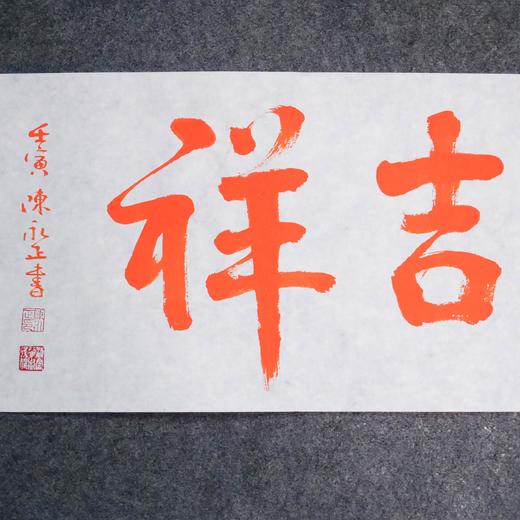 吉祥
壬寅 陳永正書